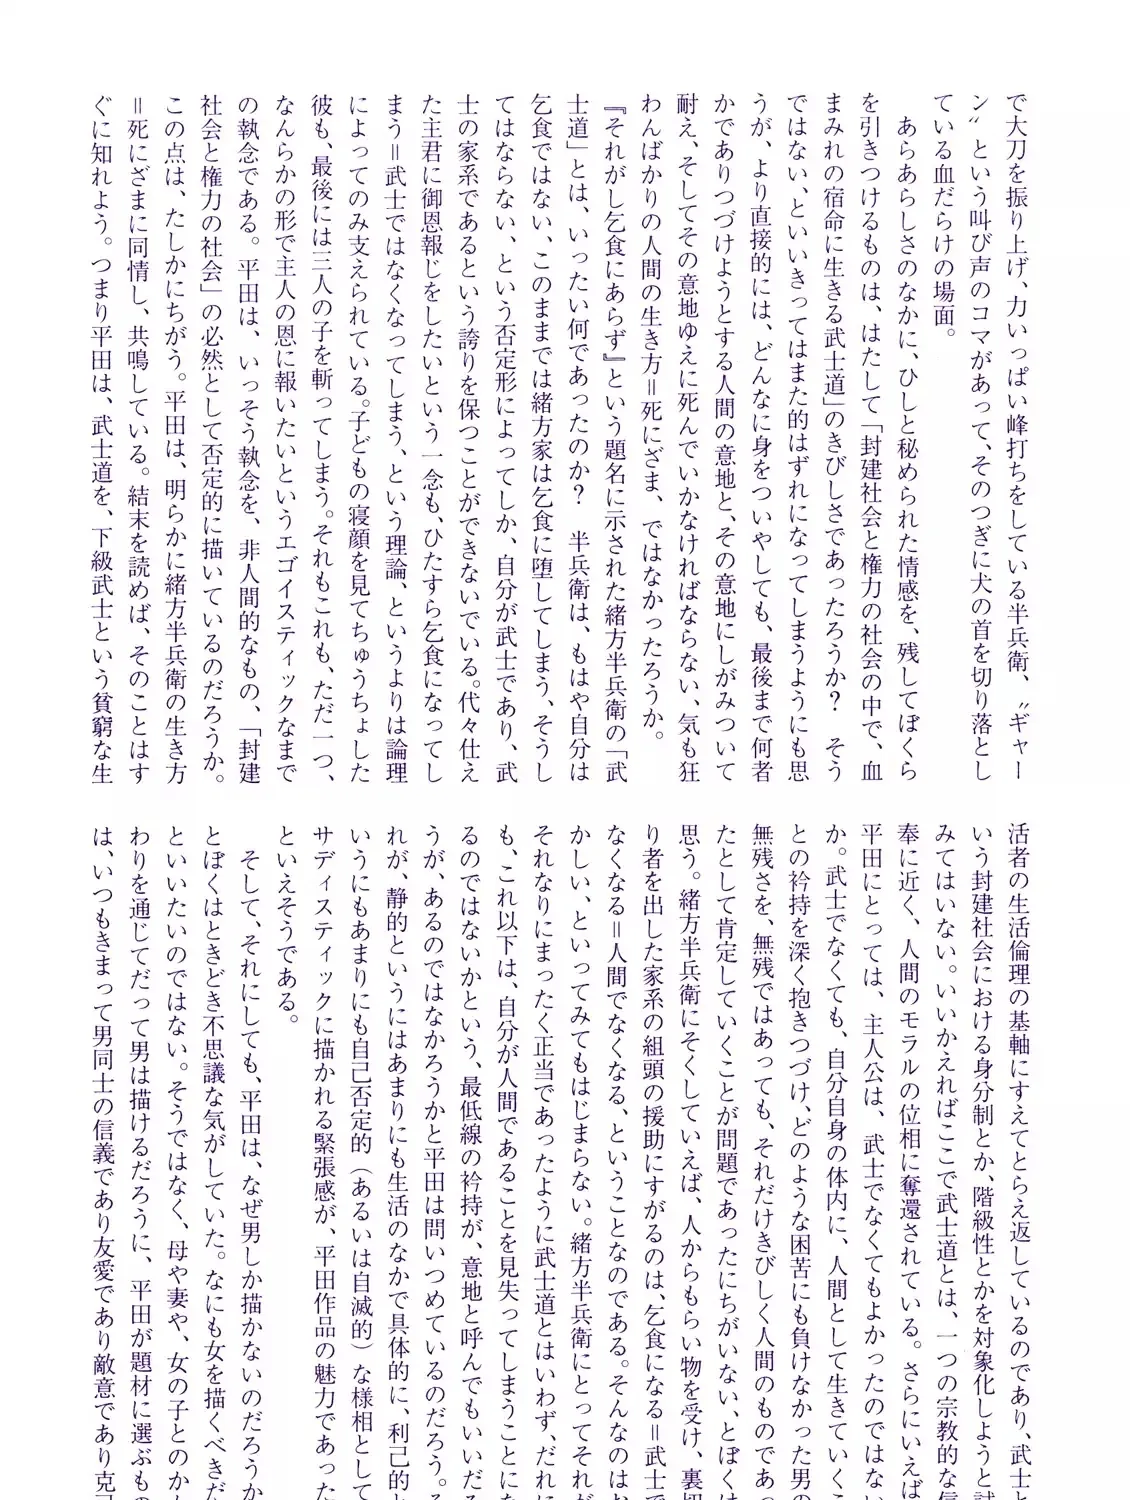 で大刀を振り上げ、力いっぱい峰打ちをしている半兵衛、〝ギャー
ン〟という叫び声のコマがあって、そのつぎに犬の首を切り落とし
ている血だらけの場面。
あらあらしさのなかに、ひしと秘められた情感を、残してぼくら
を引きつけるものは、はたして「封建社会と権力の社会の中で、血
まみれの宿命に生きる武士道」のきびしさであったろうか？　そう
ではない、といいきってはまた的はずれになってしまうようにも思
うが、より直接的には、どんなに身をついやしても、最後まで何者
かでありつづけようとする人間の意地と、その意地にしがみついて
耐え、そしてその意地ゆえに死んでいかなければならない、気も狂
わんばかりの人間の生き方＝死にざま、ではなかったろうか。
『それがし乞食にあらず』という題名に示された緒方半兵衛の「武
士道」とは、いったい何であったのか？　半兵衛は、もはや自分は
乞食ではない、このままでは緒方家は乞食に堕してしまう、そうし
てはならない、という否定形によってしか、自分が武士であり、武
士の家系であるという誇りを保つことができないでいる。代々仕え
た主君に御恩報じをしたいという一念も、ひたすら乞食になってし
まう＝武士ではなくなってしまう、という理論、というよりは論理
によってのみ支えられている。子どもの寝顔を見てちゅうちょした
彼も、最後には三人の子を斬ってしまう。それもこれも、ただ一つ、
なんらかの形で主人の恩に報いたいというエゴイスティックなまで
の執念である。平田は、いっそう執念を、非人間的なもの、「封建
社会と権力の社会」の必然として否定的に描いているのだろうか。
この点は、たしかにちがう。平田は、明らかに緒方半兵衛の生き方
＝死にざまに同情し、共鳴している。結末を読めば、そのことはす
ぐに知れよう。つまり平田は、武士道を、下級武士という貧窮な生
活者の生活倫理の基軸にすえてとらえ返しているのであり、武士と
いう封建社会における身分制とか、階級性とかを対象化しようと試
みてはいない。いいかえればここで武士道とは、一つの宗教的な信
奉に近く、人間のモラルの位相に奪還されている。さらにいえば
平田にとっては、主人公は、武士でなくてもよかったのではない
か。武士でなくても、自分自身の体内に、人間として生きていくこ
との衿持を深く抱きつづけ、どのような困苦にも負けなかった男の
無残さを、無残ではあっても、それだけきびしく人間のものであっ
たとして肯定していくことが問題であったにちがいない、とぼくは
思う。緒方半兵衛にそくしていえば、人からもらい物を受け、裏切
り者を出した家系の組頭の援助にすがるのは、乞食になる＝武士で
なくなる＝人間でなくなる、ということなのである。そんなのはお
かしい、といってみてもはじまらない。緒方半兵衛にとってそれが
それなりにまったく正当であったように武士道とはいわず、だれに
も、これ以下は、自分が人間であることを見失ってしまうことにな
るのではないかという、最低線の衿持が、意地と呼んでもいいだろ
うが、あるのではなかろうかと平田は問いつめているのだろう。そ
れが、静的というにはあまりにも生活のなかで具体的に、利己的と
いうにもあまりにも自己否定的（あるいは自滅的）な様相として
サディスティックに描かれる緊張感が、平田作品の魅力であった
といえそうである。
そして、それにしても、平田は、なぜ男しか描かないのだろうか
とぼくはときどき不思議な気がしていた。なにも女を描くべきだ
といいたいのではない。そうではなく、母や妻や、女の子とのか
わりを通じてだって男は描けるだろうに、平田が題材に選ぶもの
は、いつもきまって男同士の信義であり友愛であり敵意であり克